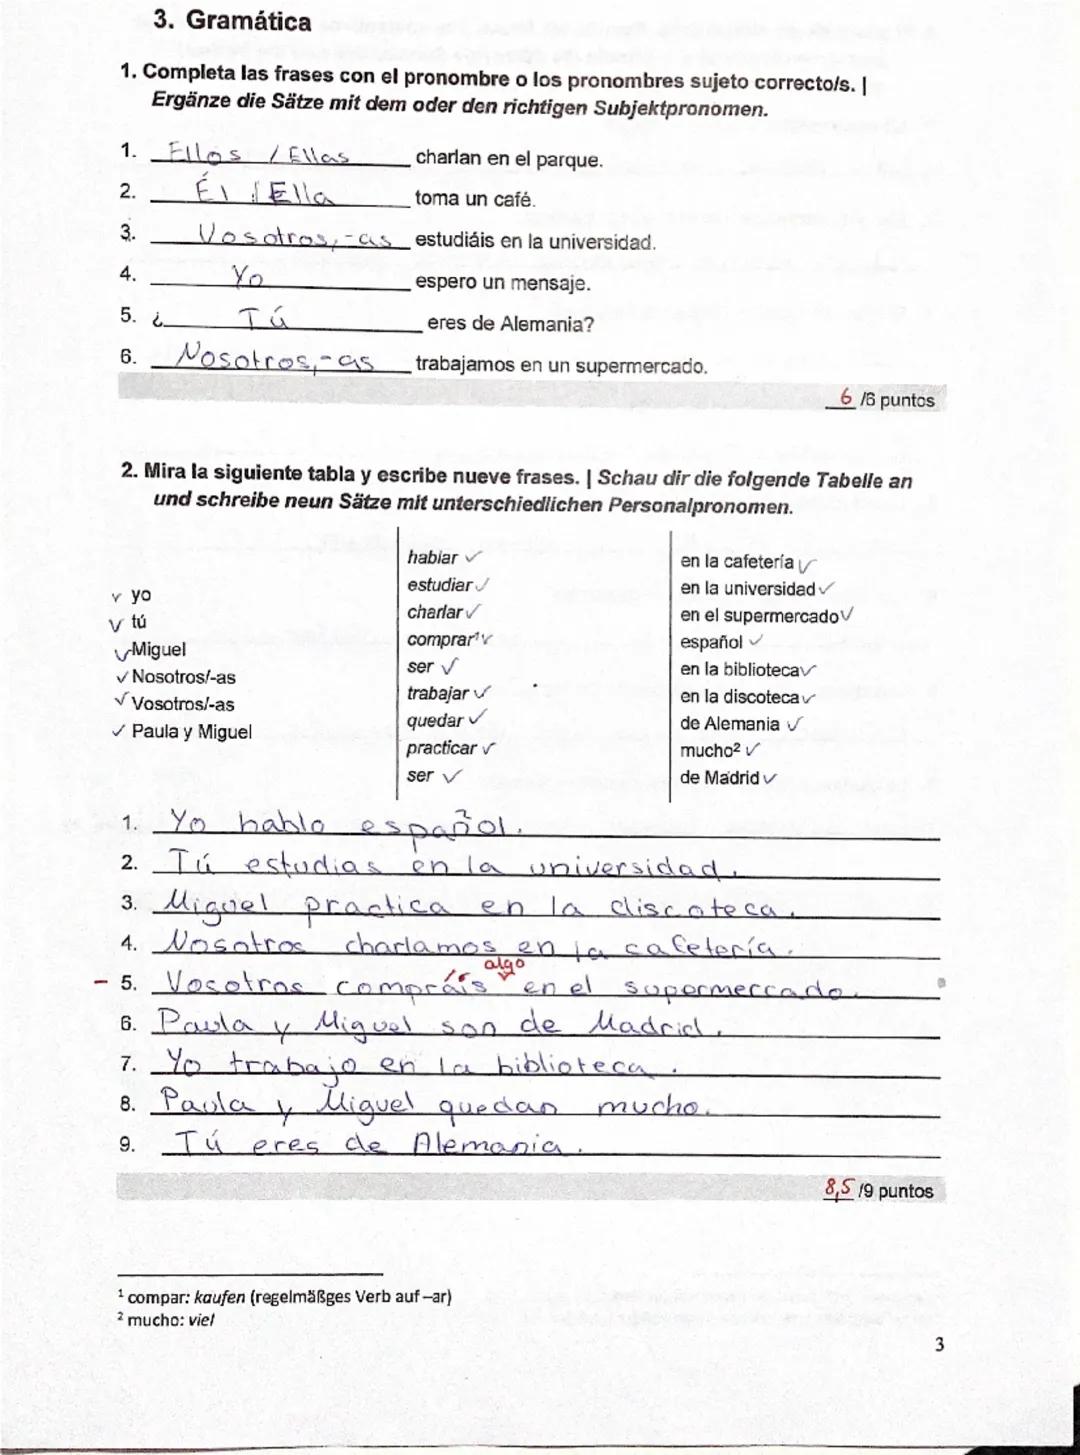 3. Gramática
1. Completa las frases con el pronombre o los pronombres sujeto correcto/s. |
Ergänze die Sätze mit dem oder den richtigen Subjektpronomen.
1. Ellos / Ellas charlan en el parque.
2. Él / Ella toma un café.
3. Vosotros,-as estudiáis en la universidad.
4. Yo espero un mensaje.
5. ¿ Tú eres de Alemania?
6. Nosotros,-as trabajamos en un supermercado.
6 /6 puntos
2. Mira la siguiente tabla y escribe nueve frases. | Schau dir die folgende Tabelle an
und schreibe neun Sätze mit unterschiedlichen Personalpronomen.
✓ yo
✓ tú
✓ Miguel
✓ Nosotros/-as
✓ Vosotros/-as
✓ Paula y Miguel
hablar ✓
estudiar ✓
charlar ✓
comprar¹ ✓
ser ✓
trabajar ✓
quedar ✓
practicar ✓
ser ✓
en la cafetería ✓
en la universidad ✓
en el supermercado ✓
español ✓
en la biblioteca ✓
en la discoteca ✓
de Alemania ✓
mucho² ✓
de Madrid ✓
1. Yo hablo español.
2. Tú estudias en la universidad.
3. Miguel practica en la discoteca.
4. Nosotros charlamos en la cafetería.
algo
- 5. Vosotros compráis en el supermercado.
6. Paula y Miguel son de Madrid.
7. Yo trabajo en la biblioteca.
8. Paula y Miguel quedan mucho.
9. Tú eres de Alemania.
8,5 /9 puntos
¹ compar: kaufen (regelmäßges Verb auf –ar)
² mucho: viel
3